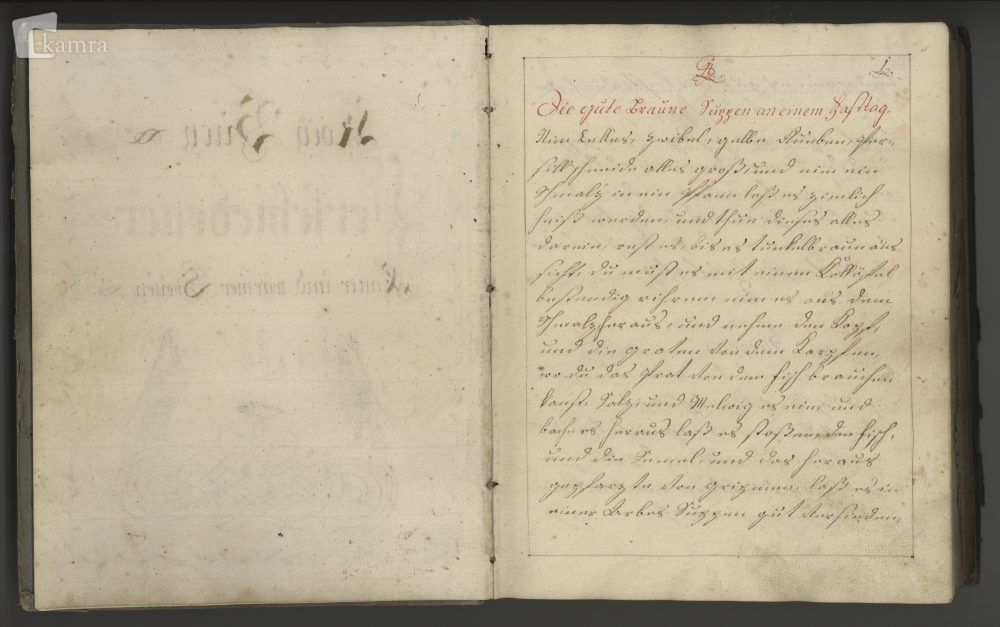 kamra
Koch Buch
Kalter und warmer Speisen
1.
Die gute Braune Suppen an einem Fasttag.
Nim Zelles, Zwibel, gelbe Rueben, Peter-
sill schneide alles groß, und nim ein
Schmalz in ein Pfann laß es zimlich
heiß werden, und thue dieses alles
darein, rest es bis es tunkelbraun aus-
sicht, du must es mit einem Kollöfel
bestendig rihren, nim es aus dem
Schmalz heraus, und nehme den Kopf,
und die graten von dem Karpfen,
wo du das Prat von dem fisch brauchen
kanst, Salz und Melwig es ein und
bache es heraus laß es stoßen den fisch,
und die Semel, und das heraus
gepfarzte von grizmen, laß es in
einer Arbes Suppen gut versieden,